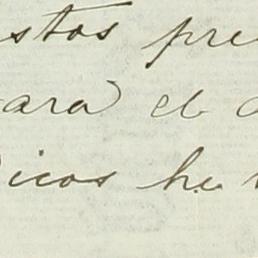 stos pre
ara el
icos he